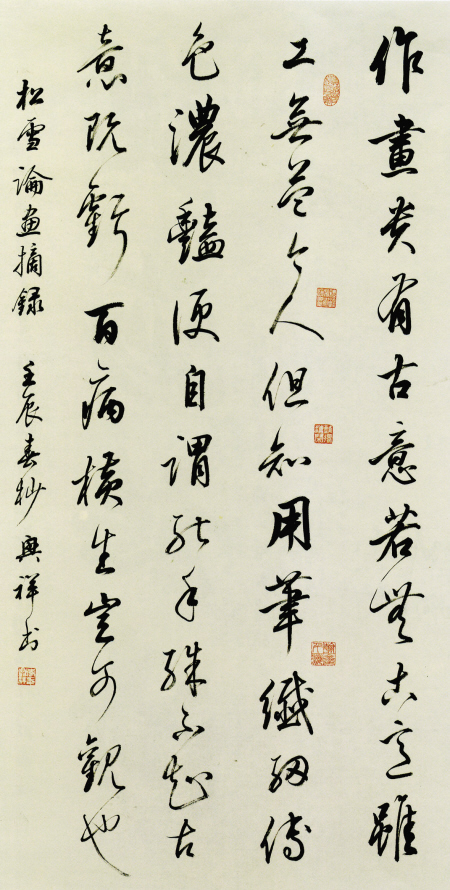 作畫貴有古意若無古意雖
工無益今人但知用筆纖細傅
色濃豔便自謂能手殊不知古
意既虧百病橫生豈可觀也
松雪論畫摘録 壬辰春杪 興祥书